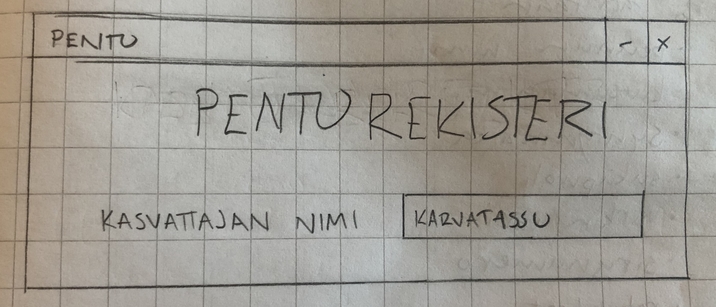 PENTU - X
PENTUREKISTERI
KASVATTAJAN NIMI KARVATASSU